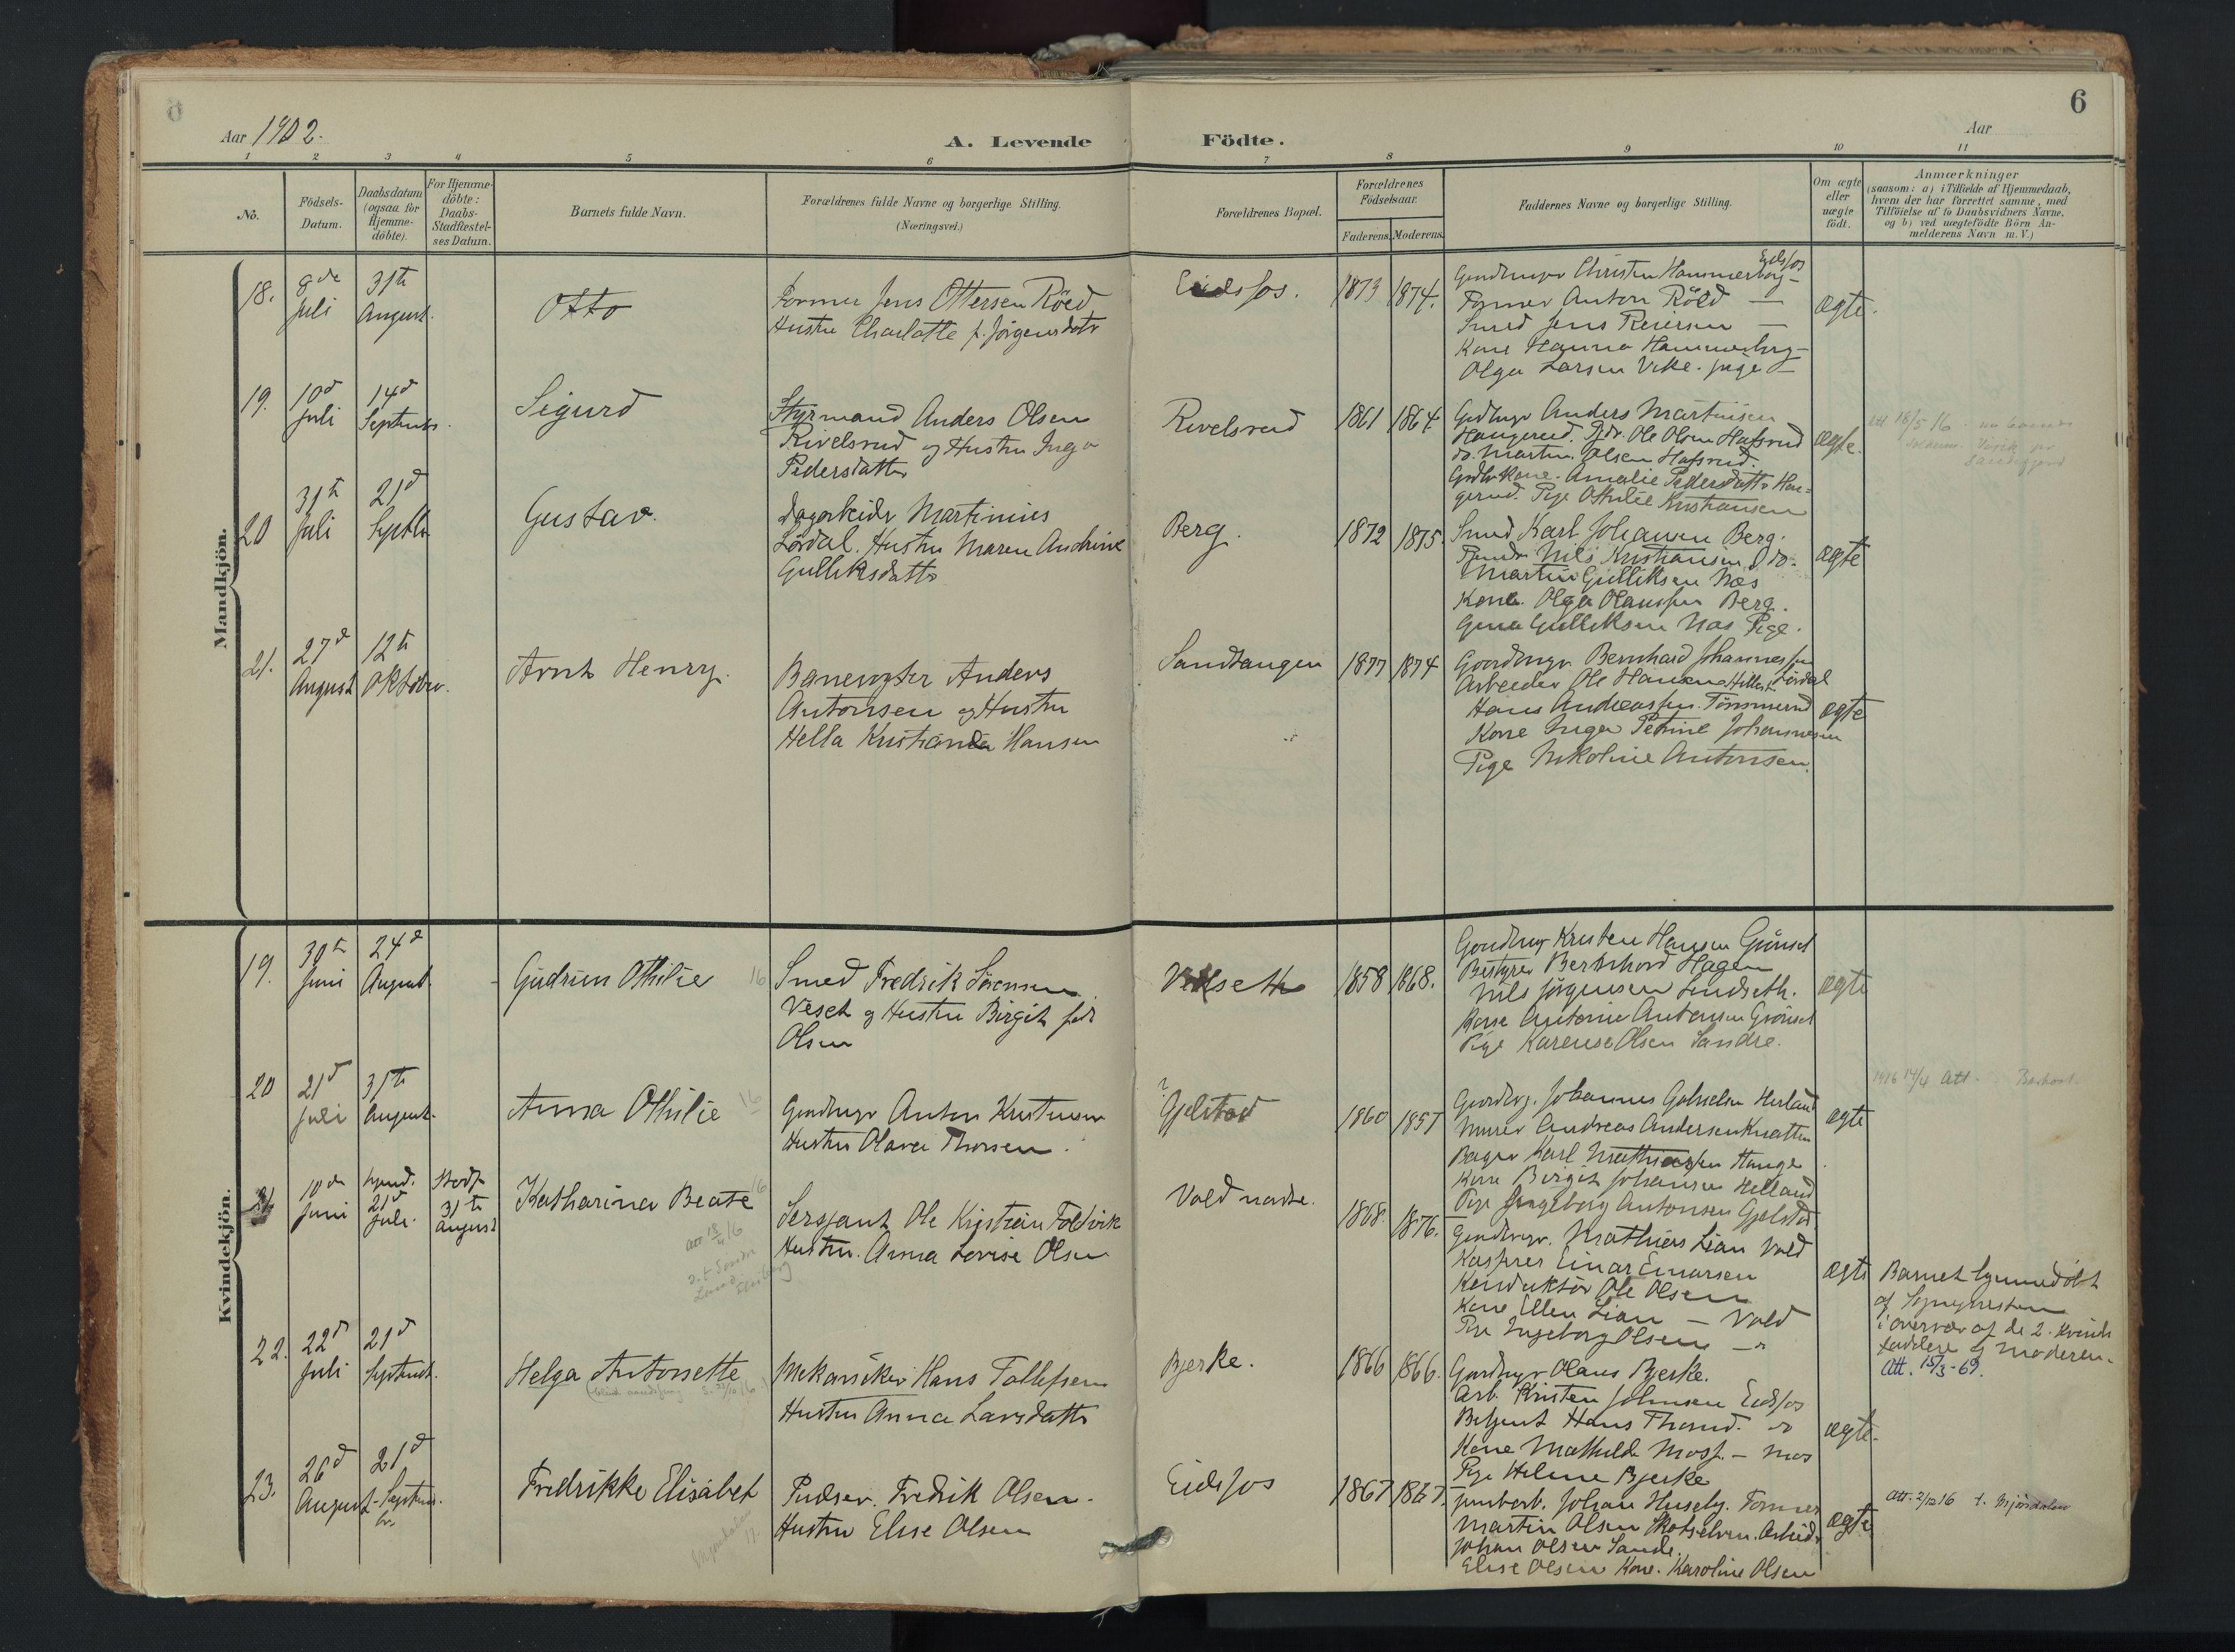 6
Aar 1902.
A. Levende Födte.
Aar
1 2 3 4 5 6 7 8 9 10 11
No.
Födsels-
Datum.
Daabsdatum
(ogsaa for
Hjemme-
döbte).
For Hjemme-
döbte:
Daabs-
Stadfæstel-
ses Datum.
Barnets fulde Navn.
Forældrenes fulde Navne og borgerlige Stilling.
(Næringsvei.)
Forældrenes Bopæl.
Forældrenes
Födselsaar.
Faderens. Moderens.
Faddernes Navne og borgerlige Stilling.
Om ægte
eller
uægte
födt.
Anmærkninger
(saasom: a) i Tilfælde af Hjemmedaab,
hvem der har forrettet samme, med
Tilföielse af to Daabsvidners Navne,
og b) ved uægtefödte Börn An-
melderens Navn m. V.)
Mandkjön.
18.
8de
Juli
31te
August.
Otto
Former Jens Ottersen Röed
Hustru Charlotte f. Jörgensdatr
Eidsfos.
1873
1874.
Eidsfos
Christen Hammerborg -
Former Anton Röed —
Smed Jens Reiersen —
Kone Hanna Hammerborg -
Olga Larsen Pige -
ægte.
19.
10d
Juli
14d
Septembr.
Sigurd
Styrmand Anders Olsen
Rivelsrud og Hustru Inga
Pedersdatter
Rivelsrud
1861
1864.
Anders Martinsen
Haugerud. Ole Olsen Hafsrud
do. Martin Olsen Hafsrud.
Amalie Pedersdatter Hau-
gerud. Pige Othilie Kristiansen
ægte.
18/5 16
20
31te
Juli
21d
Septbr
Gustav.
Dagarbeider Martinius
Lördal. Hustru Maren Andrine
Gulliksdatter
Berg.
1872
1875.
Smed Karl Johansen Berg.
Nils Kristiansen do.
Martin Gulliksen Næs
Kone Olga Olaussen Berg.
Gina Gulliksen Næs Pige.
ægte
21.
27d
August
12te
Oktober.
Arnt Henry.
Banevogter Anders
Antonsen og Hustru
Hella Kristiane Hansen
Sandtangen
1877
1874
Bernhard Johannessen
Lördal
Arbeider Ole Hansen
Hans Andreassen Tömmerud
Kone Inga Petrine Johannesen
Pige Nikoline Antonsen.
ægte
Kvindekjön.
19.
30te
Juni
24d
August.
Gudrun Othilie
16
Smed Fredrik Sörensen
Veset og Hustru Birgit född
Olsen
1858
1868.
Kristen Hansen Grönset
Bestyrer Bernhard Hagen
Nils Jörgensen
Antonie Antonsen Grönset
Pige Karense Olsen Sandre.
ægte
20
21d
Juli
31te
August.
Anna Othilie
16
Anton Kristensen
Hustru Olava Thorsen.
Gjelstad
1860
1857
Johannes
Murer Andreas Andersen Knatten
Bager Karl Mathiassen Hauge
Kone Birgit Johansen Helland
Pige Ingeborg Antonsen Gjelstad
ægte
1916 14/4 Att.
10de
Juni
hjemd.
21d
Juli.
Stadf.
31te
August
Katharina Beate
16
Att 18/4 16
Sersjant Ole Kristian Foldvik
Hustru. Anna Lovise Olsen
Vold nadre.
1868.
1876.
Mathias Lian Vold
Einar Einarsen
Konduktör Ole Olsen
Kone Ellen Lian — Vold
Pige Ingeborg Olsen — "
ægte
Barnet hjemmedöbt
af Sognepresten
i overvær af de 2. kvindl
faddere og moderen.
Att. 15/3-69.
22.
22d
Juli
21d
Septembr.
Helga Antonette
Mekaniker Hans Tollefsen
Hustru Anna Larsdatter
Bjerke.
1866
1866.
Olaus Bjerke.
Arb. Kristen Johnsen Eidsfos
Hans Thorud. "
Kone Mathilde Moss. — Moss
Pige Helene Bjerke
ægte.
23.
26d
August
21d
Septembr.
Fredrikke Elisabet
17.
Pudser. Fredrik Olsen.
Hustru Elise Olsen
Eidsfos
1867
1867.
Johan Huseby. Former
Martin Olsen Skotselven. Arbeider
Johan Olsen Sande.
Elise Olsen Kone. Karoline Olsen
ægte
Att. 2/12 16 f. Mjöndalen